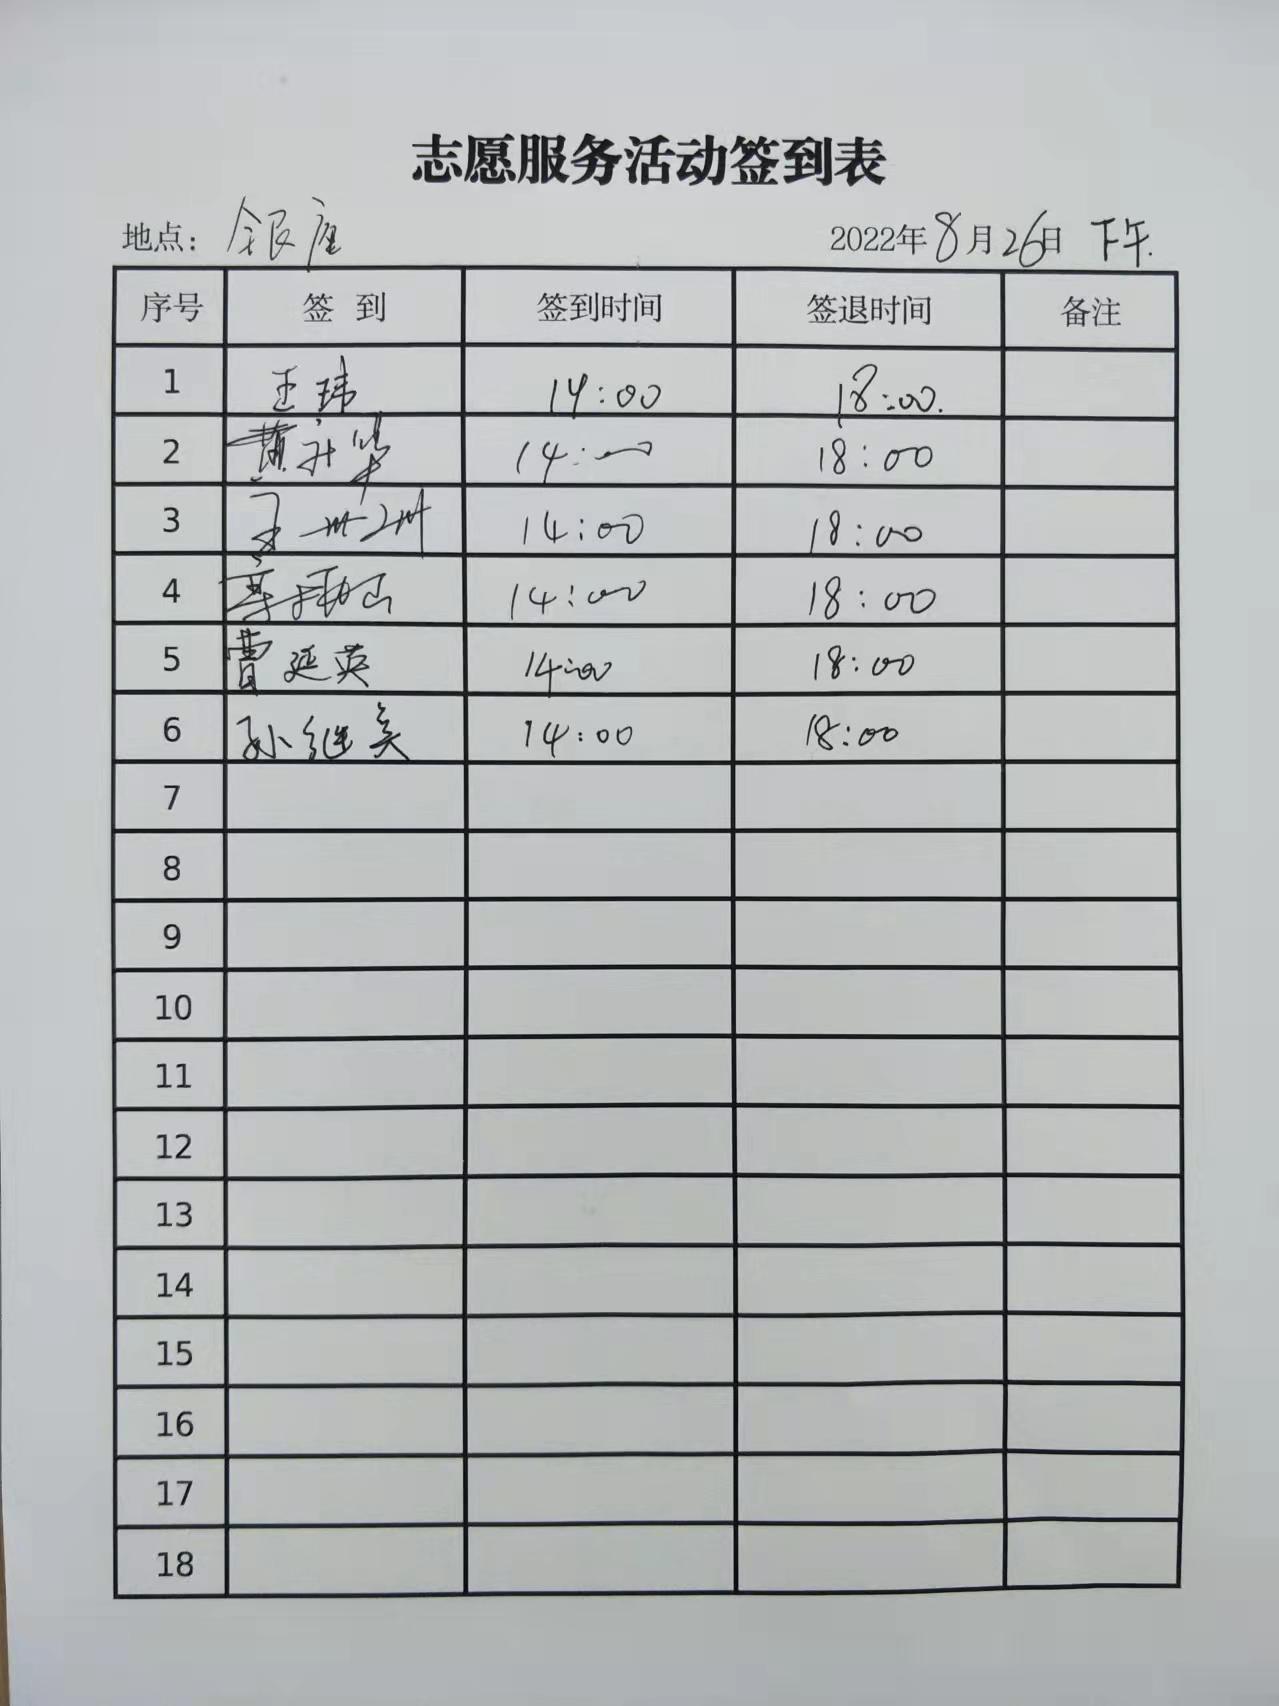 志愿服务活动签到表
地点：银座 2022年8月26日 下午.
序号 签到 签到时间 签退时间 备注
1 王玮 14:00 18:00.
2 黄升华 14:00 18:00
3 14:00 18:00
4 14:00 18:00
5 曹延英 14:00 18:00
6 孙继美 14:00 18:00
7
8
9
10
11
12
13
14
15
16
17
18